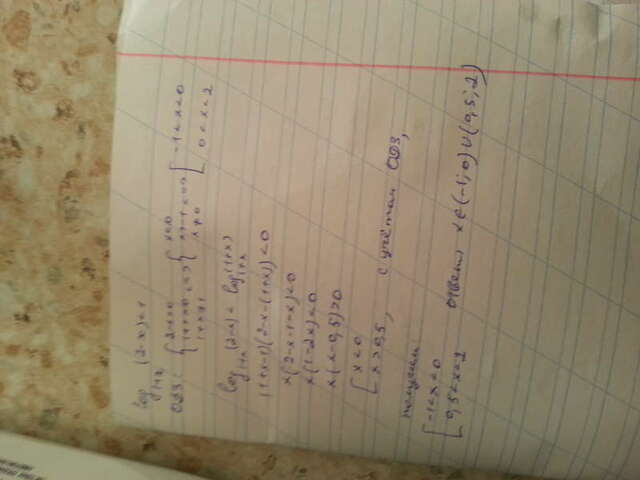 log₁₊ₓ (2-x) < 1
ОДЗ: { 2-x>0 <=> { x<2 [ -1<x<0
1+x>0 x>-1 <=> 0<x<2
1+x≠1 x≠0
log₁₊ₓ (2-x) < log₁₊ₓ (1+x)
(1+x-1)(2-x-(1+x)) < 0
x(2-x-1-x)<0
x(1-2x)<0
x(x-0,5)>0
[ x<0
x>0,5, с учётом ОДЗ,
получим
[ -1<x<0
0,5<x<2 Ответ: x∈(-1;0)∪(0,5;2)